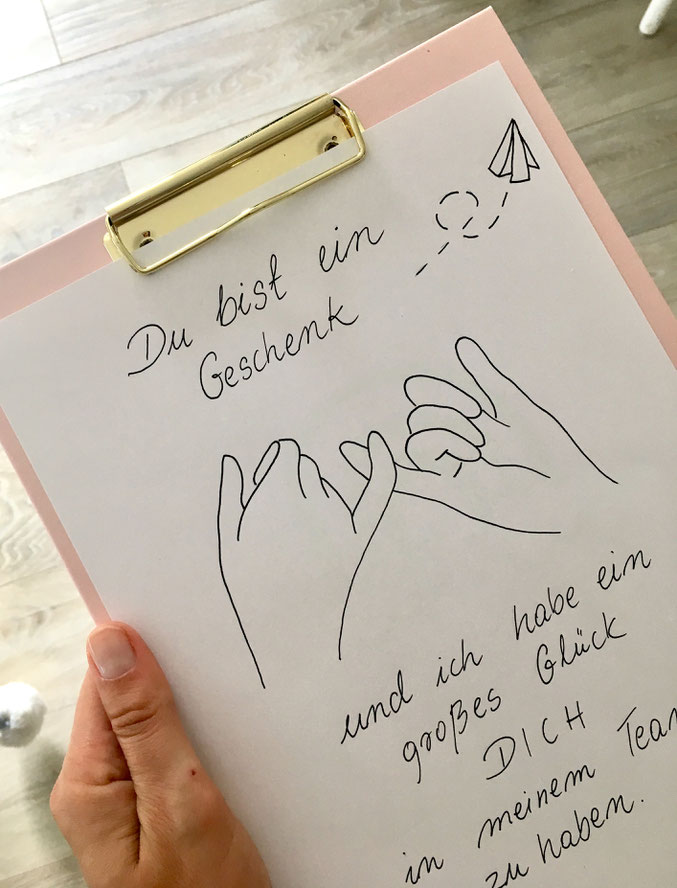 Du bist ein
Geschenk
und ich habe ein
großes Glück
DICH
in meinem Team
zu haben.